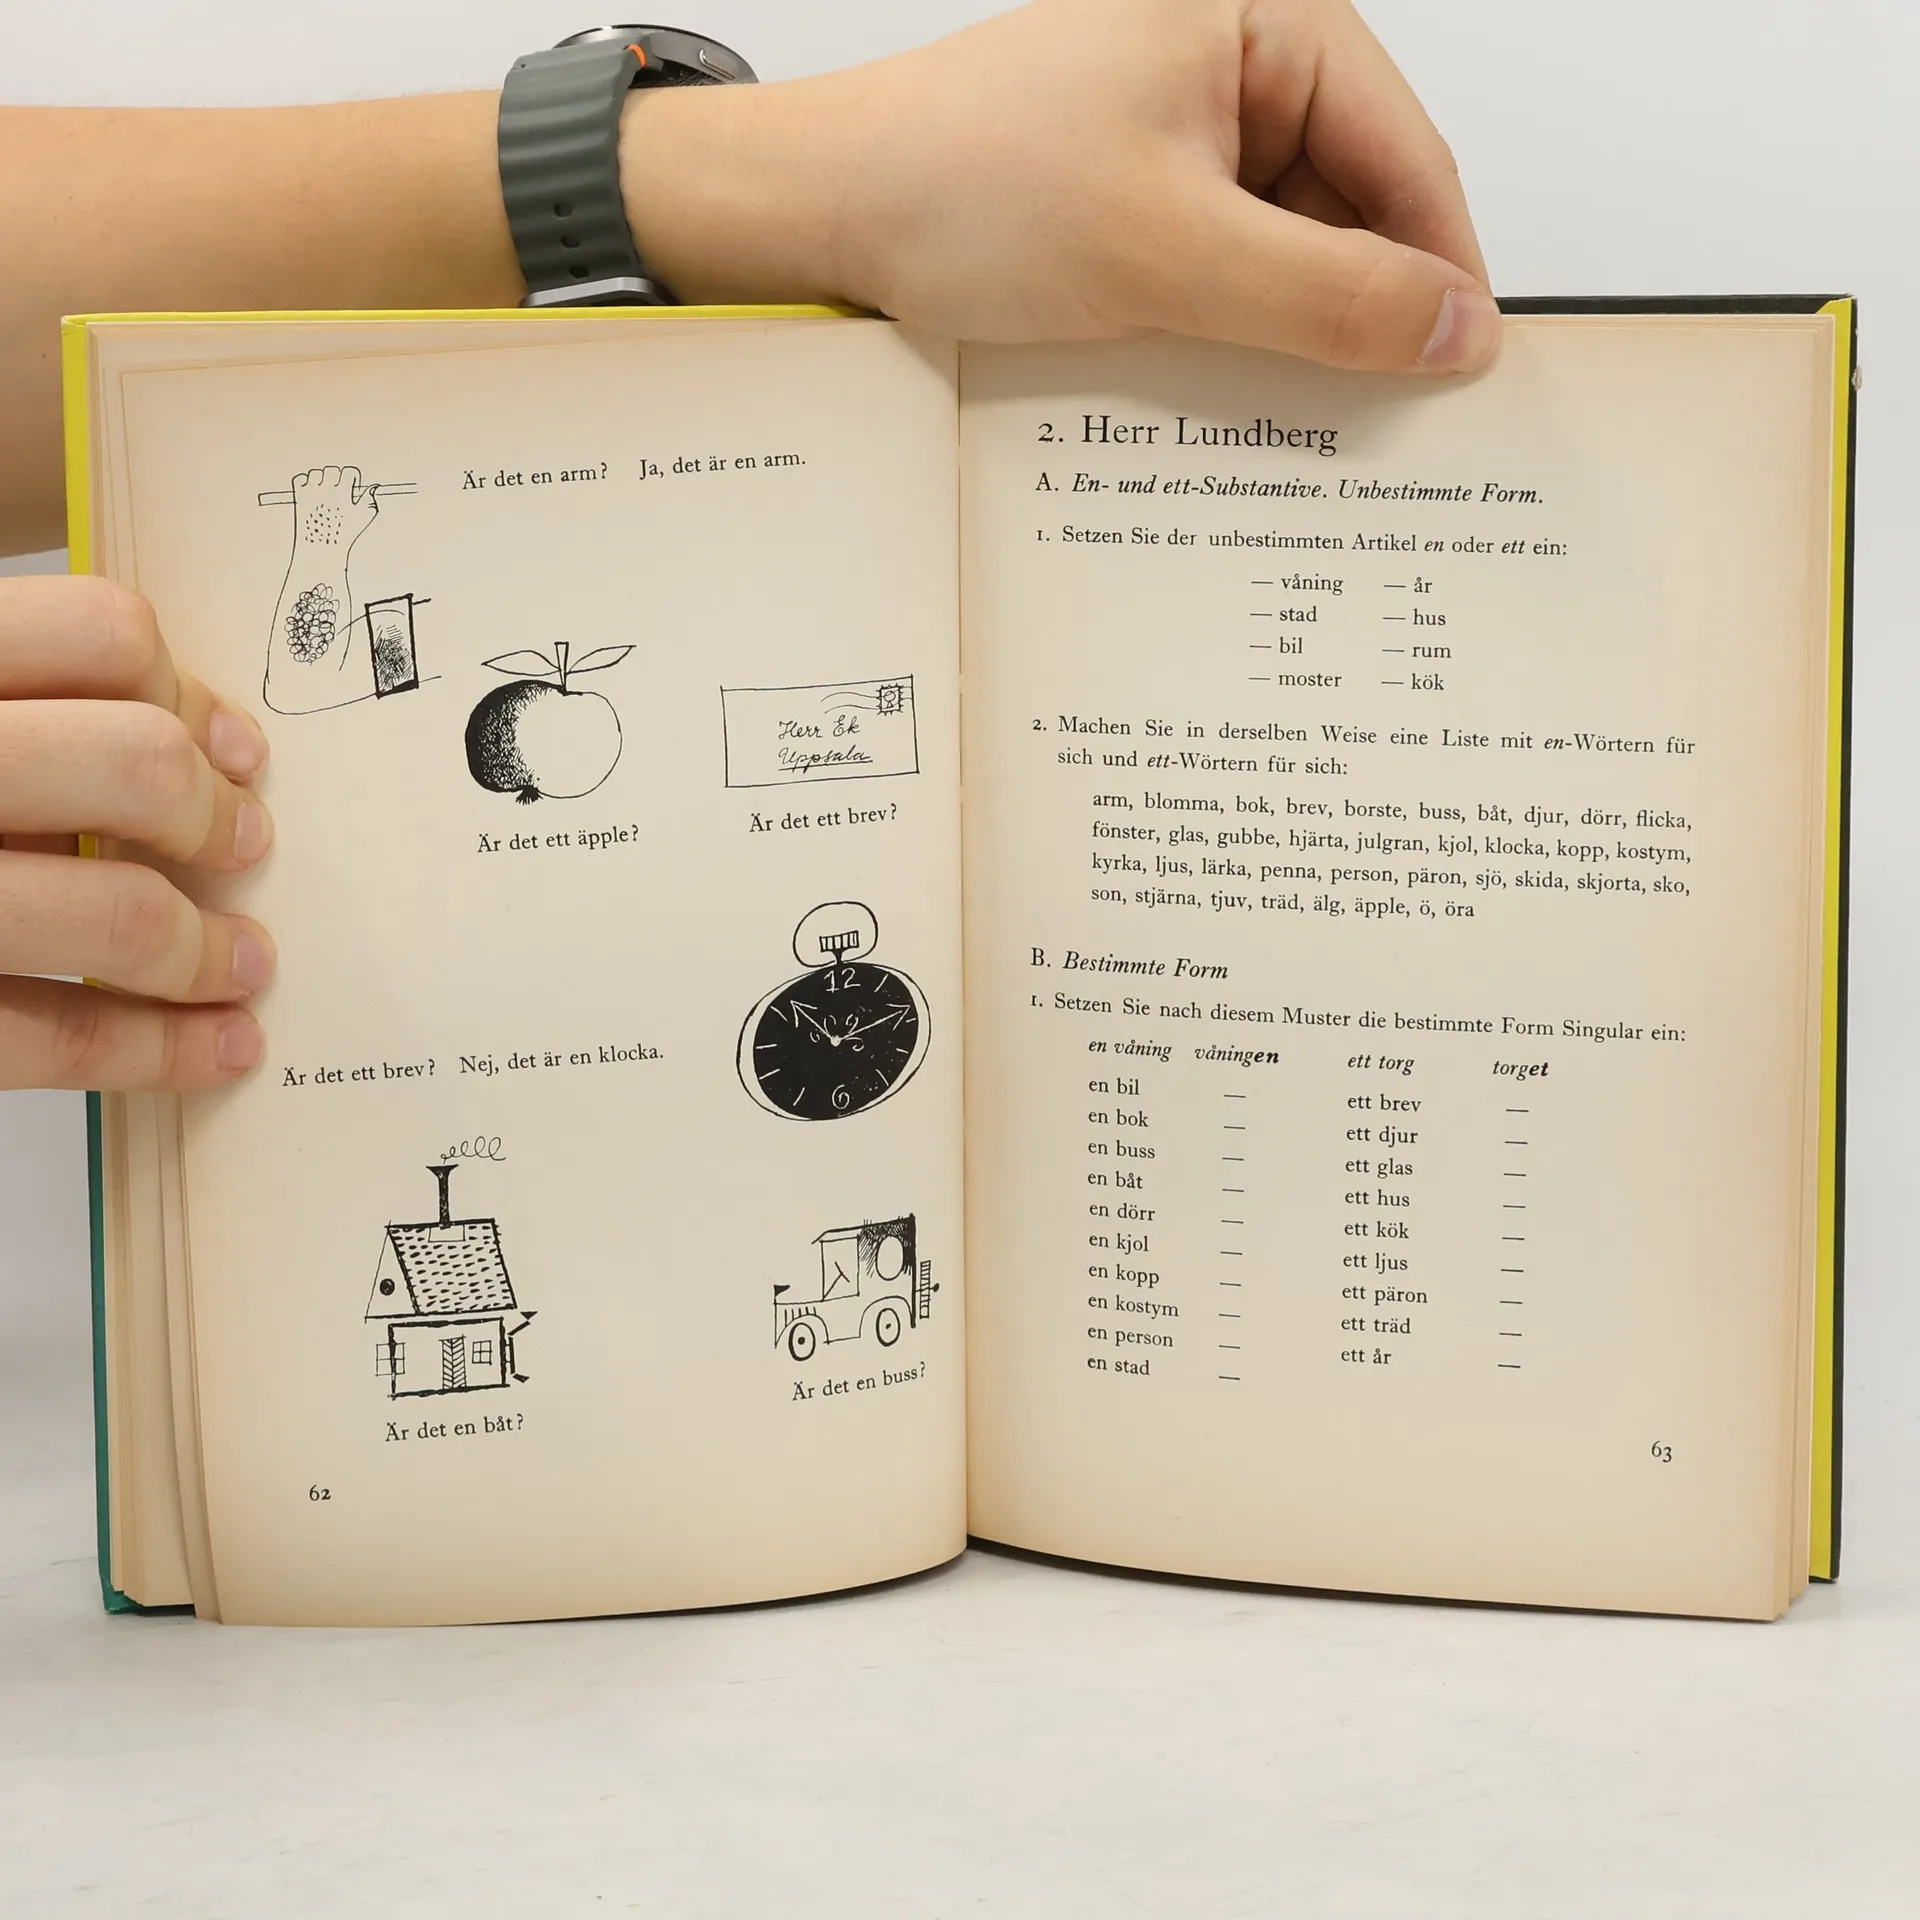 Är det en arm? Ja, det är en arm.
Herr Ek
Uppsala
Är det ett äpple?
Är det ett brev?
12
6
Är det ett brev? Nej, det är en klocka.
Är det en båt?
Är det en buss?
62
2. Herr Lundberg
A. En- und ett-Substantive. Unbestimmte Form.
1. Setzen Sie der unbestimmten Artikel en oder ett ein:
— våning — år
— stad — hus
— bil — rum
— moster — kök
2. Machen Sie in derselben Weise eine Liste mit en-Wörtern für
sich und ett-Wörtern für sich:
arm, blomma, bok, brev, borste, buss, båt, djur, dörr, flicka,
fönster, glas, gubbe, hjärta, julgran, kjol, klocka, kopp, kostym,
kyrka, ljus, lärka, penna, person, päron, sjö, skida, skjorta, sko,
son, stjärna, tjuv, träd, älg, äpple, ö, öra
B. Bestimmte Form
1. Setzen Sie nach diesem Muster die bestimmte Form Singular ein:
en våning våningen ett torg torget
en bil — ett brev —
en bok — ett djur —
en buss — ett glas —
en båt — ett hus —
en dörr — ett kök —
en kjol — ett ljus —
en kopp — ett päron —
en kostym — ett träd —
en person — ett år —
en stad —
63